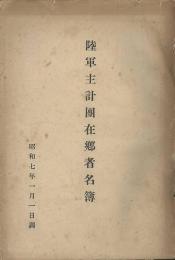 陸軍主計團在鄕者名簿
昭和七年一月一日調